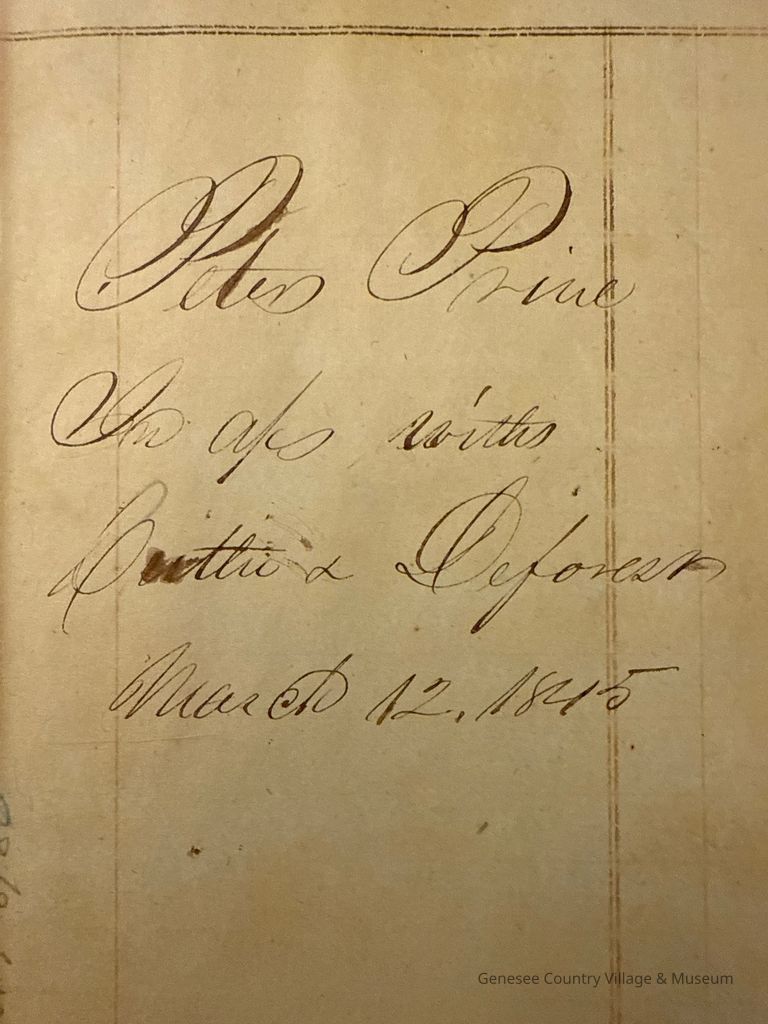 Peter Prine
In a/cs with
& Deforest
March 12, 1845
Genesee Country Village & Museum